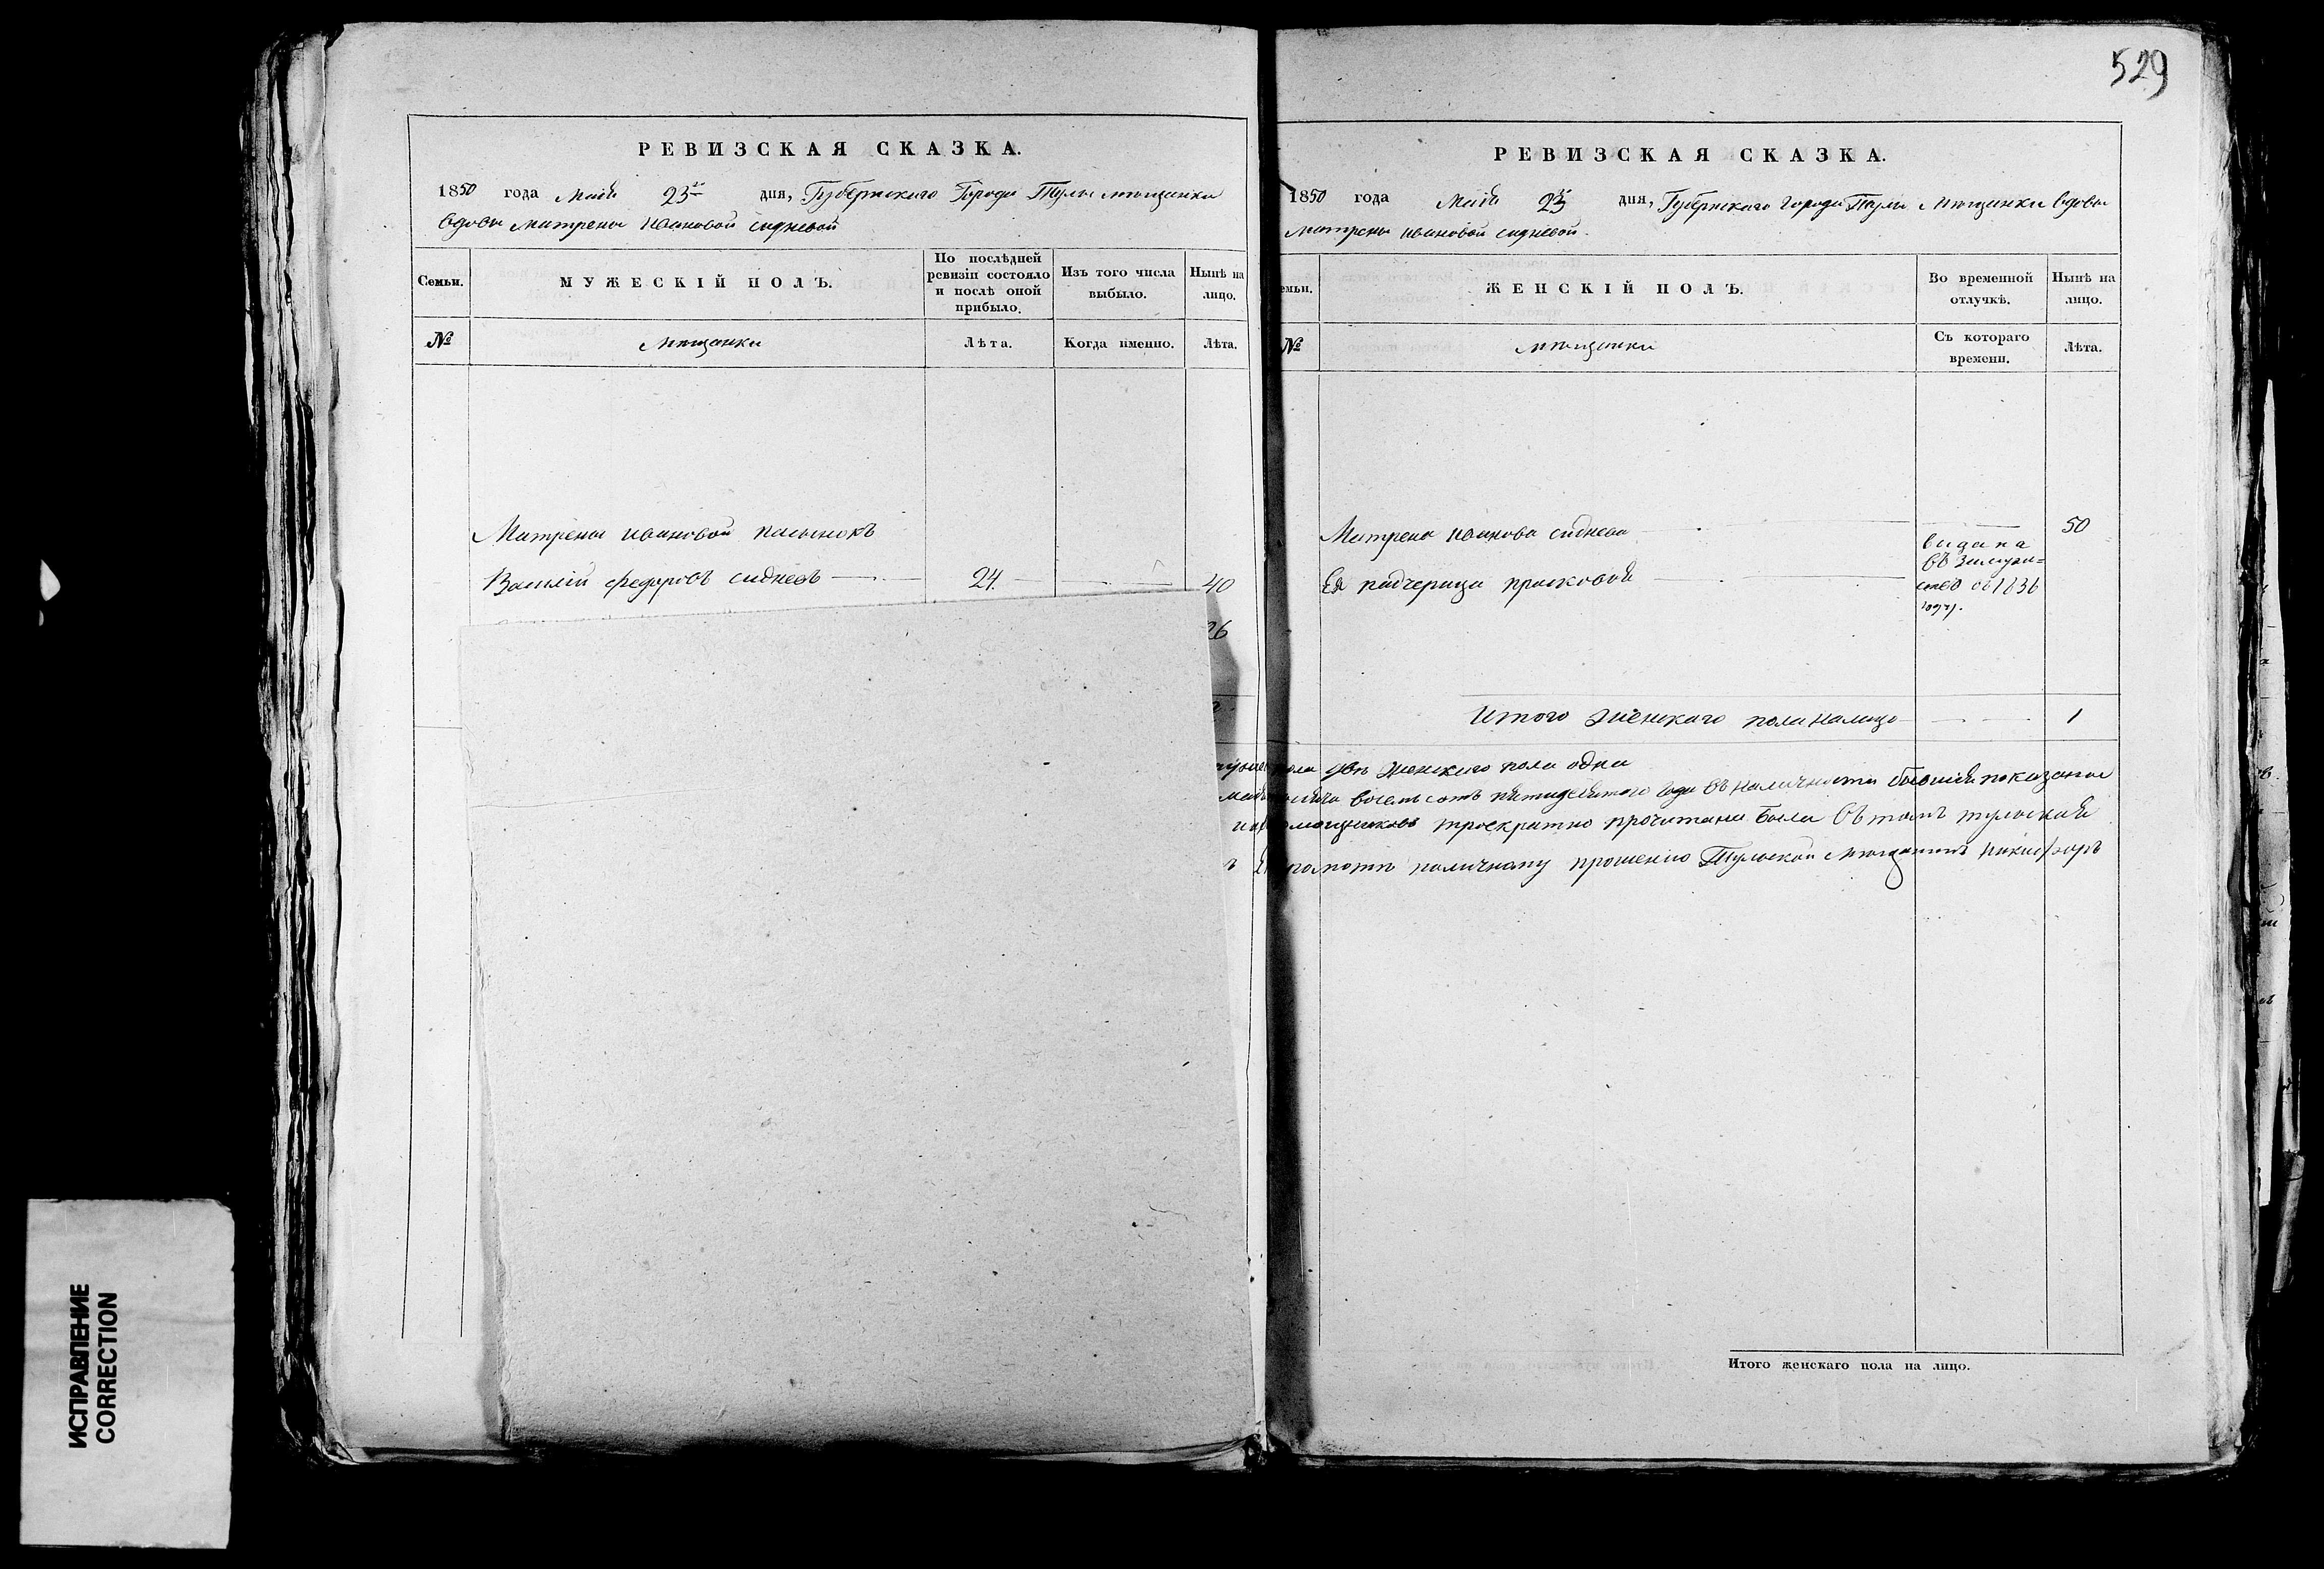 529
РЕВИЗСКАЯ СКАЗКА.
1850 года Маія 23го дня, Губернскаго Города Тулы мещанки
вдовы Матрены Ивановой сидневой
Семьи.
МУЖЕСКІЙ ПОЛЪ.
По послѣдней ревизіи состояло и послѣ оной прибыло.
Изъ того числа выбыло.
Нынѣ на лицо.
№
Мѣщанки
Лѣта.
Когда именно.
Лѣта.
Матрены ивановой пасынокъ
Василій федоровъ сидневъ 24. 40
26
РЕВИЗСКАЯ СКАЗКА.
1850 года Маія 23 дня, Губернскаго города Тулы Мещанки вдовы
Матрены ивановой сидневой.
емьи.
ЖЕНСКІЙ ПОЛЪ.
Во временной отлучкѣ.
Нынѣ на лицо.
№
мѣщанки
Съ котораго времени.
Лѣта.
Матрена иванова сиднева 50
Ея падчерица прасковья
выдана
въ замуже=
ство съ 1836
году.
Итого женскаго пола налицо 1
пола двѣ женскаго пола одна
восемьсотъ пятидесятого года въ наличности бывшія показаны
троекратно прочитана была въ тульской
по личному прошенію Тульской Мещанинъ Никифоръ
Итого женскаго пола на лицо.
ИСПРАВЛЕНИЕ
CORRECTION